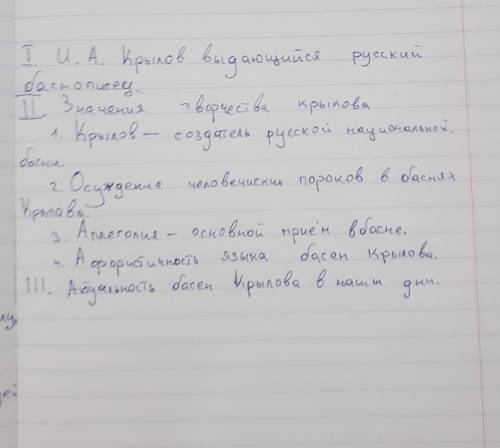 I И. А. Крылов выдающийся русский
баснописец.
II. Значения творчества крылова
1. Крылов – создатель русской национальной
басни.
2. Осуждение человечиских пороков в баснях
Крылова.
3. Аллеголия – основной приём в басне.
4. Афористичность языка басен Крылова.
III. Актуальность басен Крылова в наши дни.